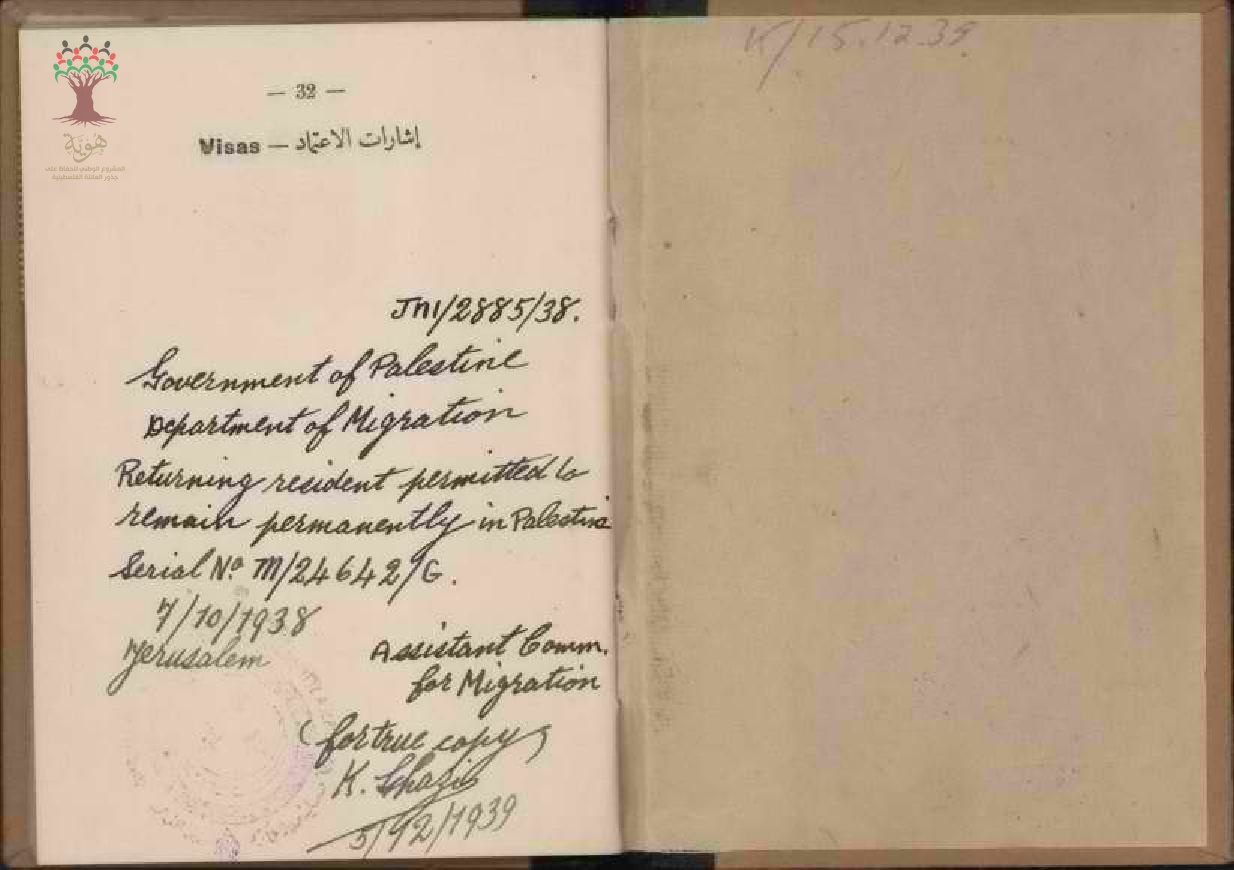 هُوِيَّة
المشروع الوطني للحفاظ على
جذور العائلة الفلسطينية
— 32 —
Visas — إشارات الاعتماد
JM1/2885/38.
Government of Palestine
Department of Migration
Returning resident permitted to
remain permanently in Palestine
Serial No. M/24642/G.
7/10/1938
Jerusalem
Assistant Comm.
for Migration
(for true copy)
K. Ghazi
5/12/1939
K/15.12.39